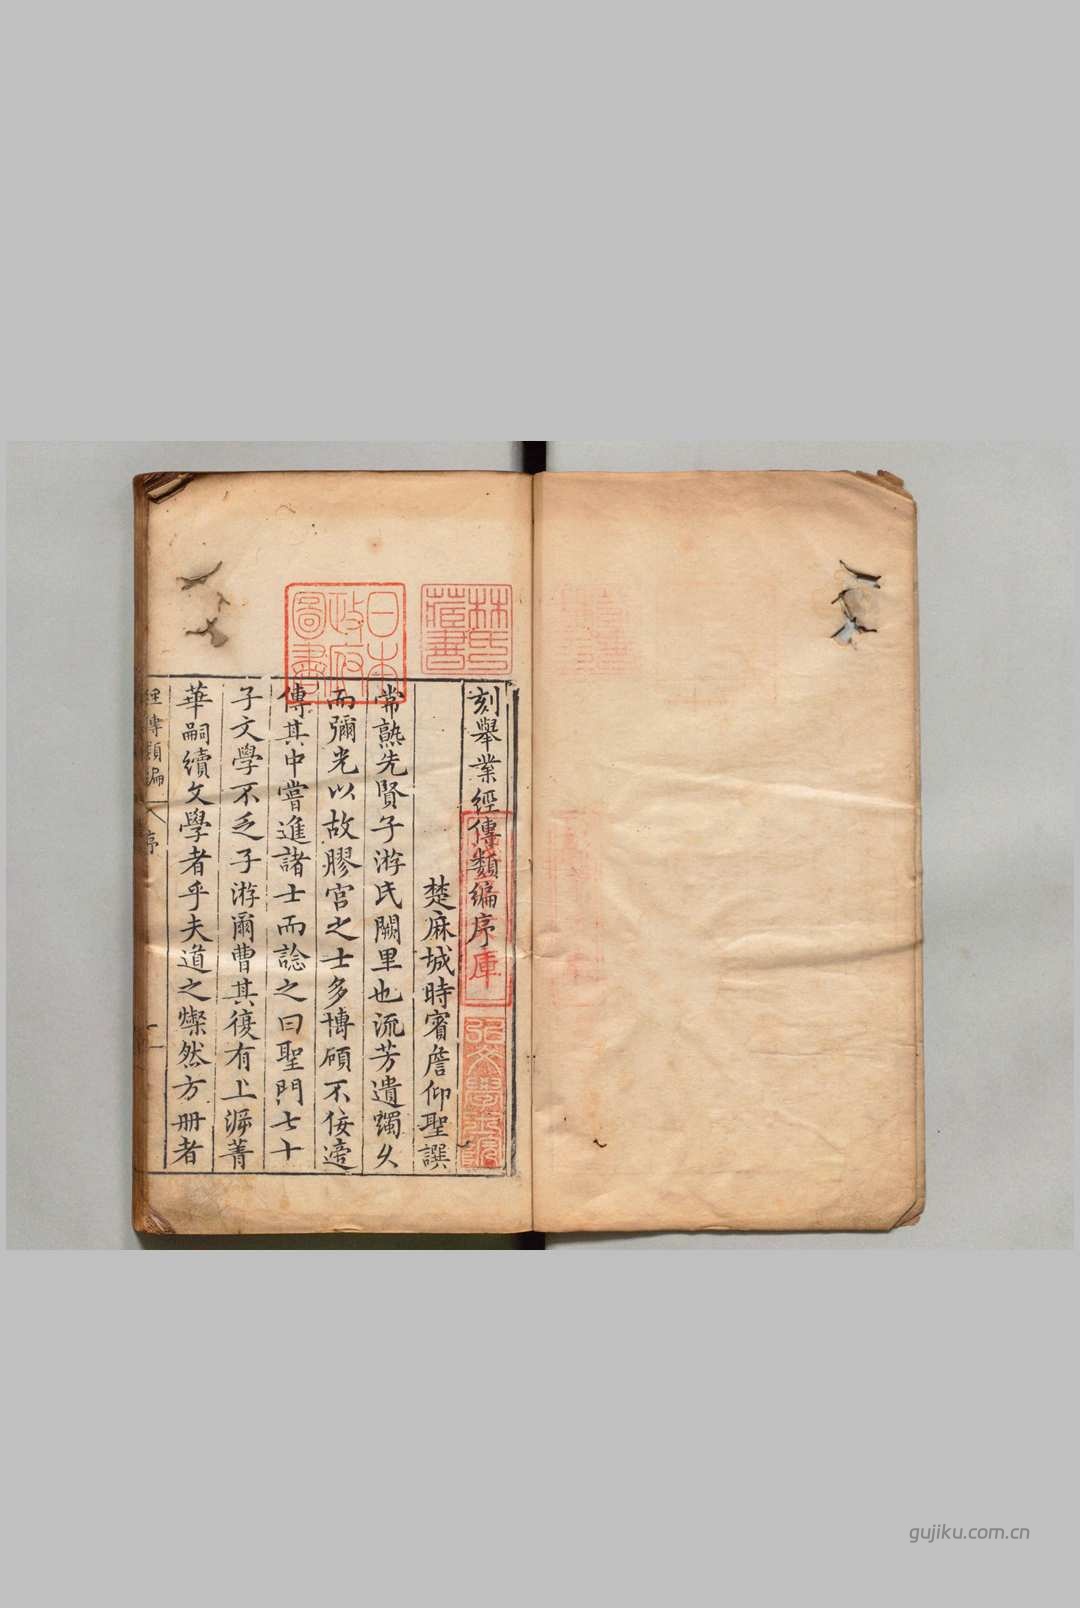 刻舉業經傳類編序
楚麻城時賓詹仰聖譔
常熟先賢子游氏闕里也流芳遺躅久
而彌光以故膠宮之士多博碩不佞遆
傳其中嘗進諸士而諗之曰聖門七十
子文學不乏子游爾曹其復有上泝菁
華嗣續文學者乎夫道之燦然方册者
經傳類編
序
一
林氏藏書
日本政府圖書
庫
gujiku.com.cn